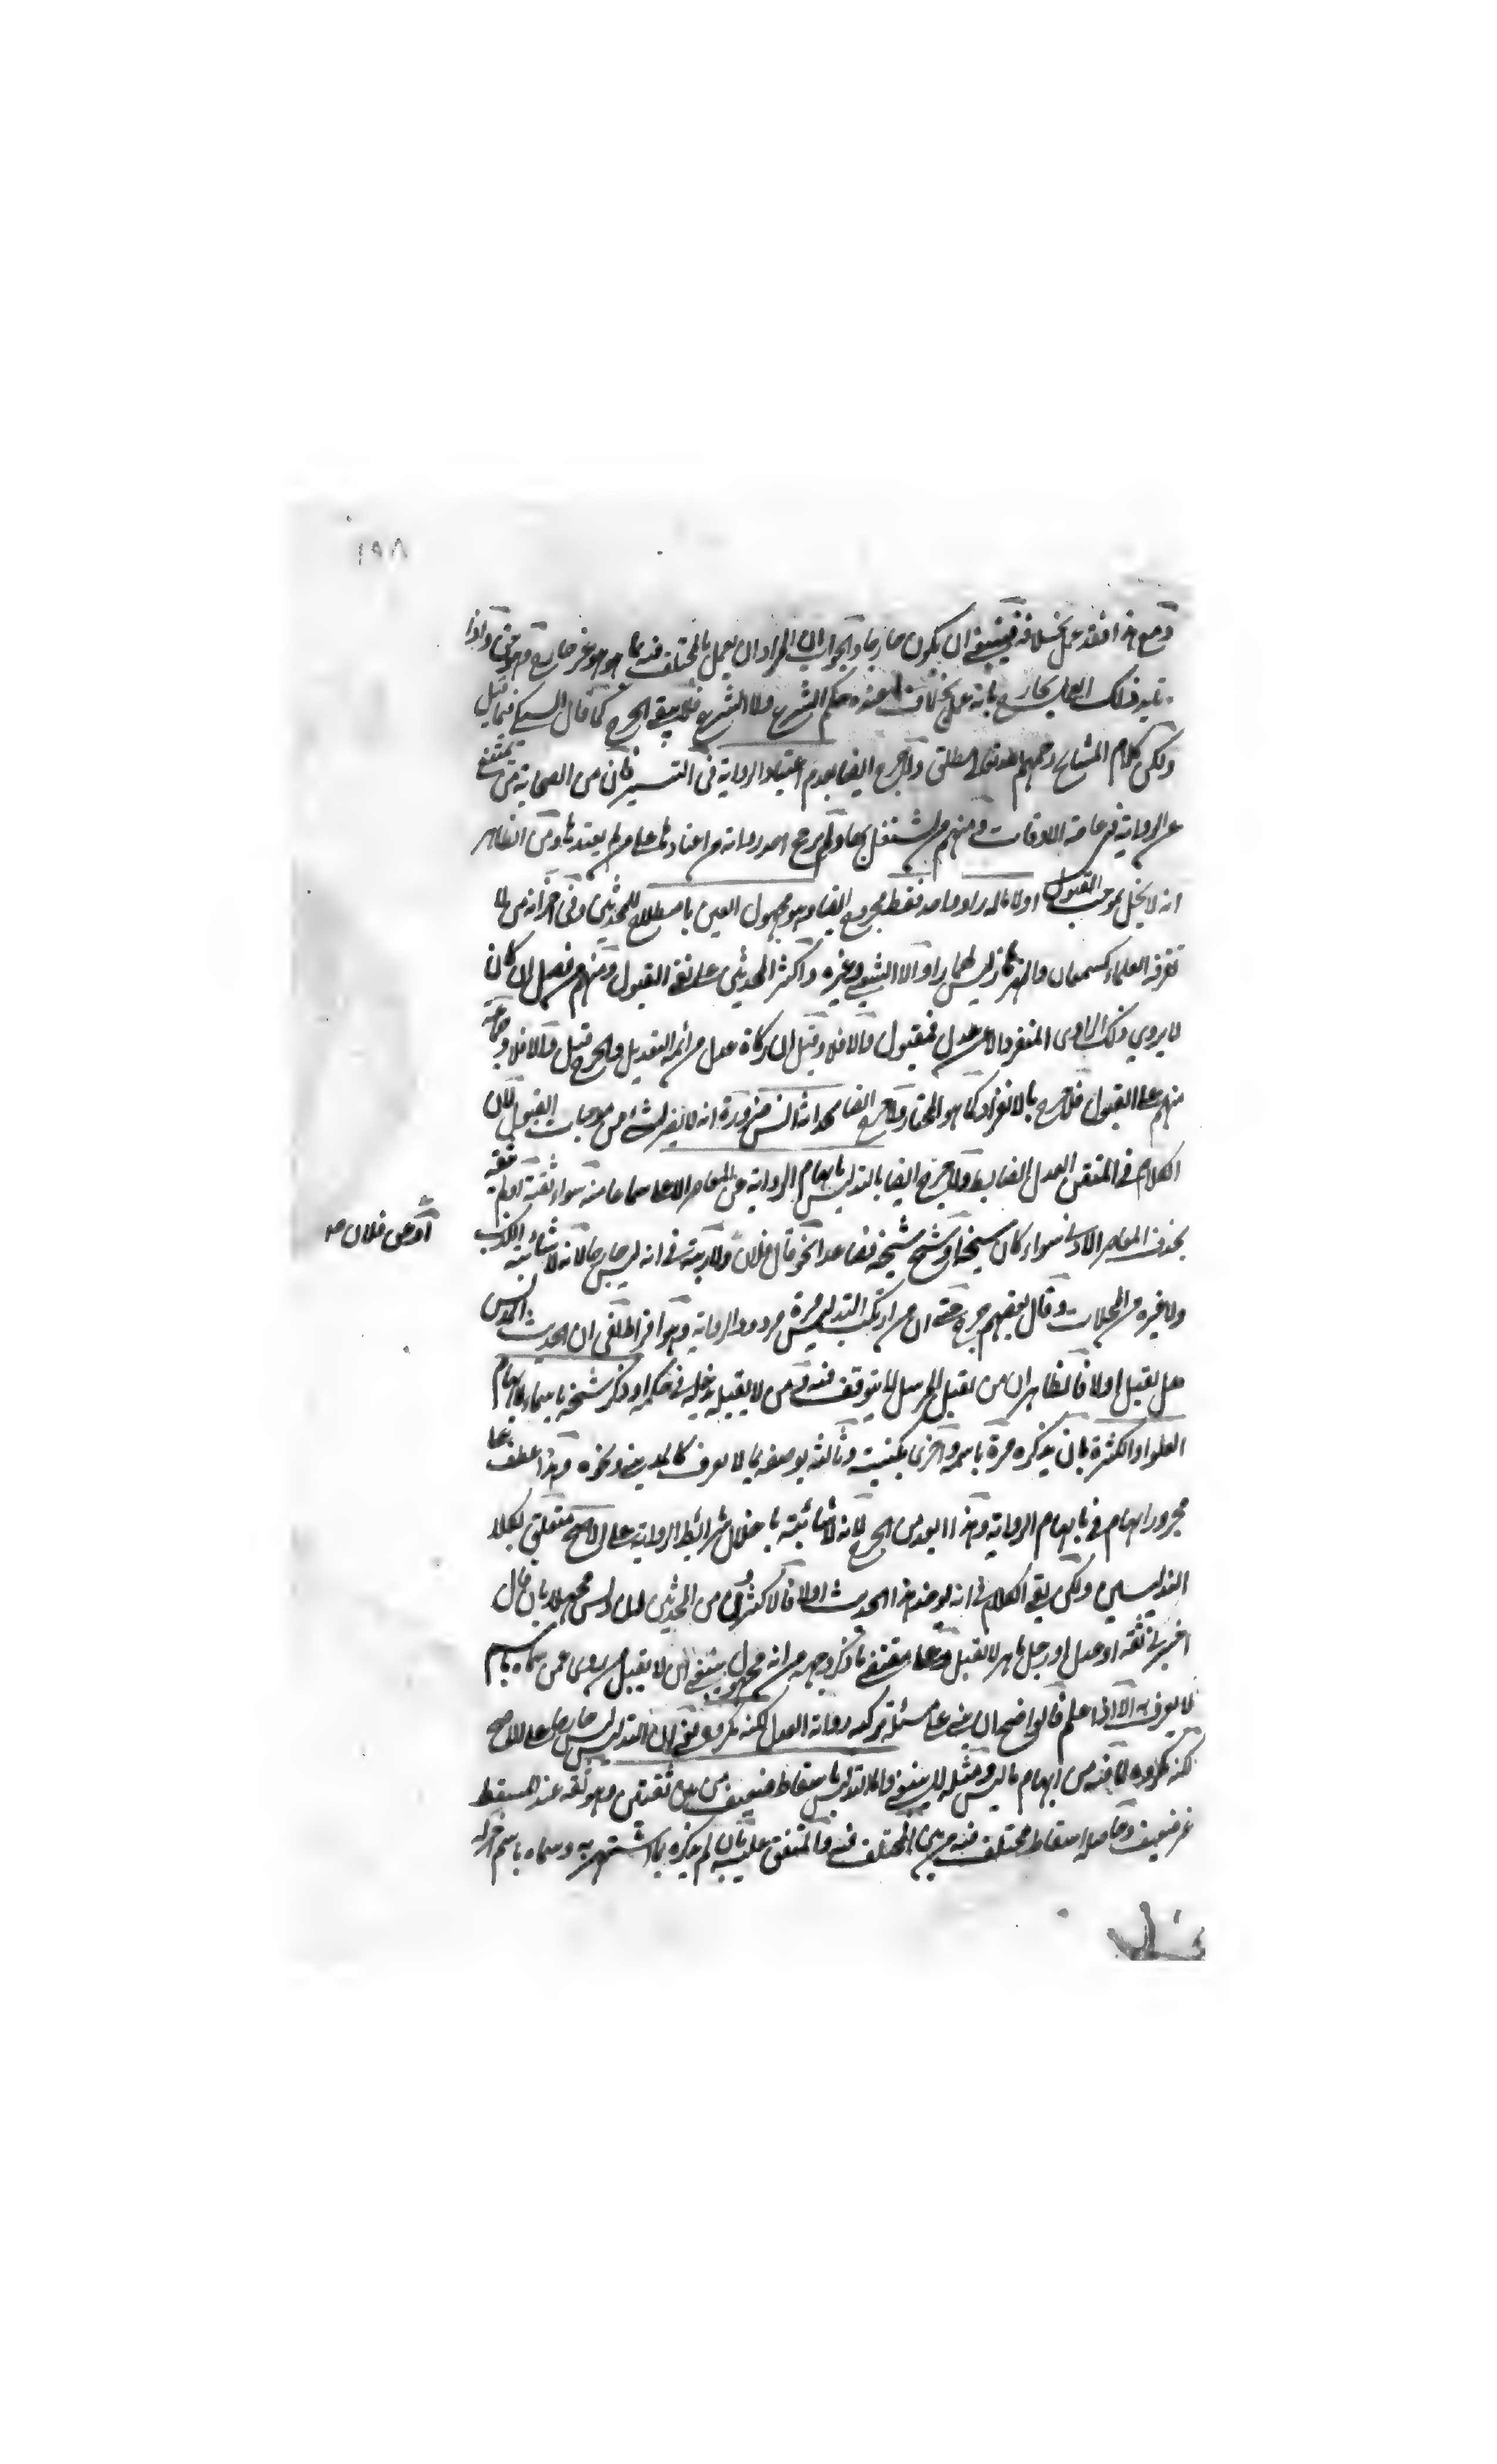 ١٩٨
ومع هذا فقد عمل بخلافه فينبغي ان يكون جارحا والجواب ان المراد ان يعمل بالمختلف فيه بما هو هو غير جارح وهو حق واذا
قيد ذلك العمل بجارح بانه عمل بخلاف عنده حكم الشرع ولا الشرع فلا يبقى الجرح كما قال السبكي فيما قيل
ولكن كلام المشايخ رحمهم الله تعالى مطلق ولا جرح ايضا بعدم اعتياد الرواية فان من الصحابة من يمتنع
عن الرواية في عامة الاوقات ومنهم من يشتغل بها ولم يرجح احد رواية من اعتادها على من لم يعتدها ومن الظاهر
انه لا يخل بموجب القبول اولا فله راو واحد فقط مجروح ايضا وهو مجهول العين باصطلاح المحدثين وفي انه من لا
تعرفه العلماء كسمعان والهزهاز ليس لهما راو الا الشعبي وغيره واكثر المحدثين على نفي القبول ومنهم من فصل ان كان
لا يروي ذلك الراوي المنفرد الا عن عدل فمقبول والا فلا وقيل ان زكاه عدل من ائمة التعديل والجرح قبل والا فلا وجماعة
منهم على القبول فلا جرح بالانفراد كما هو المختار ولا جرح ايضا بحداثة السن ضرورة انه لا يضر لشيء من موجبات القبول لان
الكلام في المتقن العدل الضابط ولا جرح ايضا بالتدليس بايهام الرواية عن المعاصر الاعلى سماعا منه سواء ثقة او لم
يحذف المعاصر الادنى سواء كان شيخا او شيخ شيخه فصاعدا نحو قال فلان ولا ريبة في انه ليس جارحا لانه لا شائبة الكذب
او عن فلان صح
ولا غيره من المخلات وقال بعضهم جرح حتى ان من ارتكب التدليس مرة مردود الرواية وهو افراط بقي ان الحديث المدلس
هل يقبل اولا فالظاهر ان من يقبل المرسل لا يتوقف فيه ومن لا يقبله يدخله في حكمه او ذكر شيخه باسماء بايهام
العلو او الكثرة بان يذكره مرة باسمه واخرى بكنيته وثالثة يوصفه بما لا يعرف كالمدينى ونحوه وهذا عطف على
مجرور ايهام في بايهام الرواية وهذا ابعد من الجرح لانه لا شائبة باخلال شرائط الرواية على الاصح متعلق بكلا
التدليسين ولكن بقي الكلام في انه يوخذ بهذا الحديث اولا فالاكثرون من المحدثين وليس مجهولا بان قال
اخبرني ثقة او عدل او رجل ماهر لا يقبل وعلى مقتضى ما ذكر وجهه من انه مجهول ينبغي ان لا يقبل من روى عمن سماه باسم
لا يعرف به الا اذا علم فالواضح ان يبنى على مسئلة تزكية رواية العدل لكنه مكروه بقي ان التدليس ليس جارحا على الاصح
لكنه مكروه لما فيه من ايهام ما ليس ومثله لا ينبغي واما التدليس باسقاط ضعيف من بين ثقتين وهو ثقة عند المسقط
غير ضعيف وحاصله اسقاط مختلف فيه من بين المختلف فيه والمتفق عليه بان لم يذكره بما اشتهر به وسماه باسم اخر له